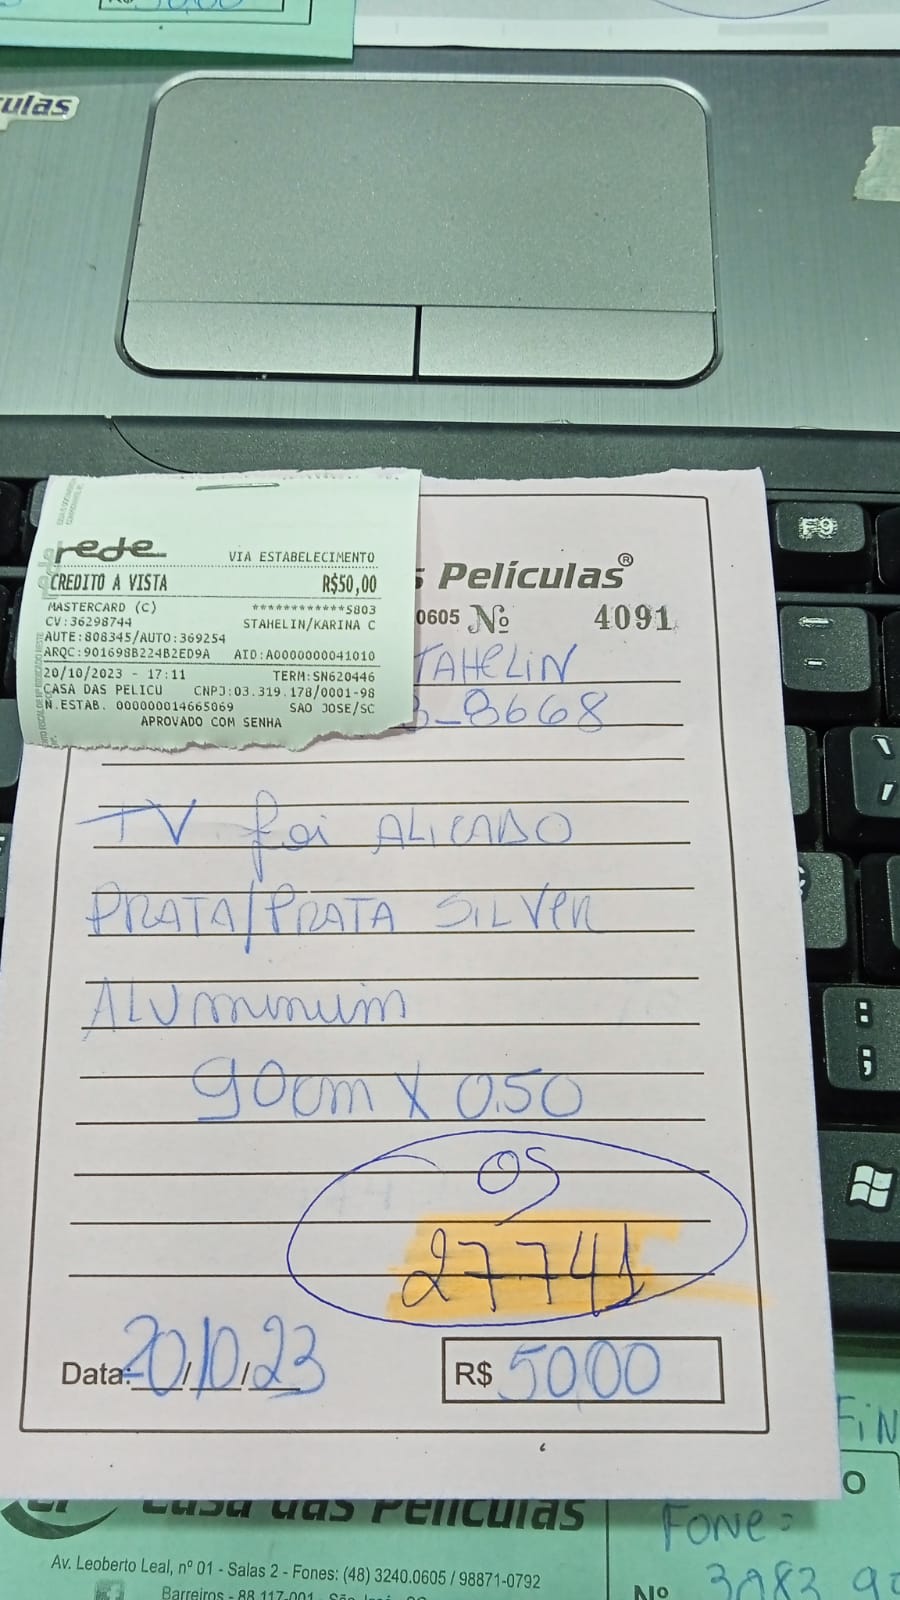 ulas
rede
VIA ESTABELECIMENTO
CREDITO A VISTA R$50,00
MASTERCARD (C) ************5803
CV:36298744 STAHELIN/KARINA C
AUTE:808345/AUTO:369254
ARQC:901698B224B2ED9A AID:A0000000041010
20/10/2023 - 17:11 TERM:SN620446
CASA DAS PELICU CNPJ:03.319.178/0001-98
N.ESTAB. 000000014665069 SAO JOSE/SC
APROVADO COM SENHA
s Películas®
0605 Nº 4091
TAHELIN
3-8668
TV foi ALICADO
PRATA/PRATA SILVER
ALUMINUM
90cm X 0.50
OS
27741
Data: 20/10/23
R$ 50,00
F9
FiN
O
Casa das Películas
Fone:
Av. Leoberto Leal, nº 01 - Salas 2 - Fones: (48) 3240.0605 / 98871-0792
Barreiros - 88.117-001
Nº